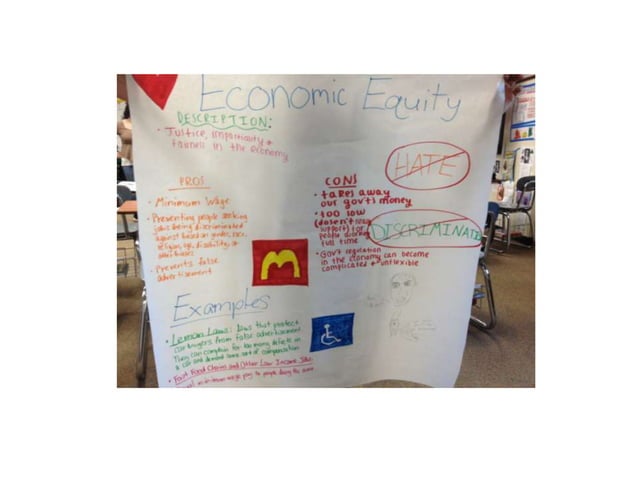 Economic Equity
DESCRIPTION:
Justice, impartiality &
fairness in the economy
HATE
PROS
• Minimum Wage
• Preventing people seeking
jobs being discriminated
against based on gender, race,
religion, age, disability, or
other biases
• Prevents false
advertisement
CONS
• takes away
our gov't's money
• too low
(doesn't really
support) for
people working
full time
DISCRIMINATI
• Gov't regulation
in the economy can become
complicated + inflexible
M
Examples
• Lemon Laws: laws that protect
car buyers from false advertisement
They can complain for too many defects in
a car and demand some sort of compensation
• Fast Food Chains and Other Low Income Jobs:
minimum wage pay to people doing the same